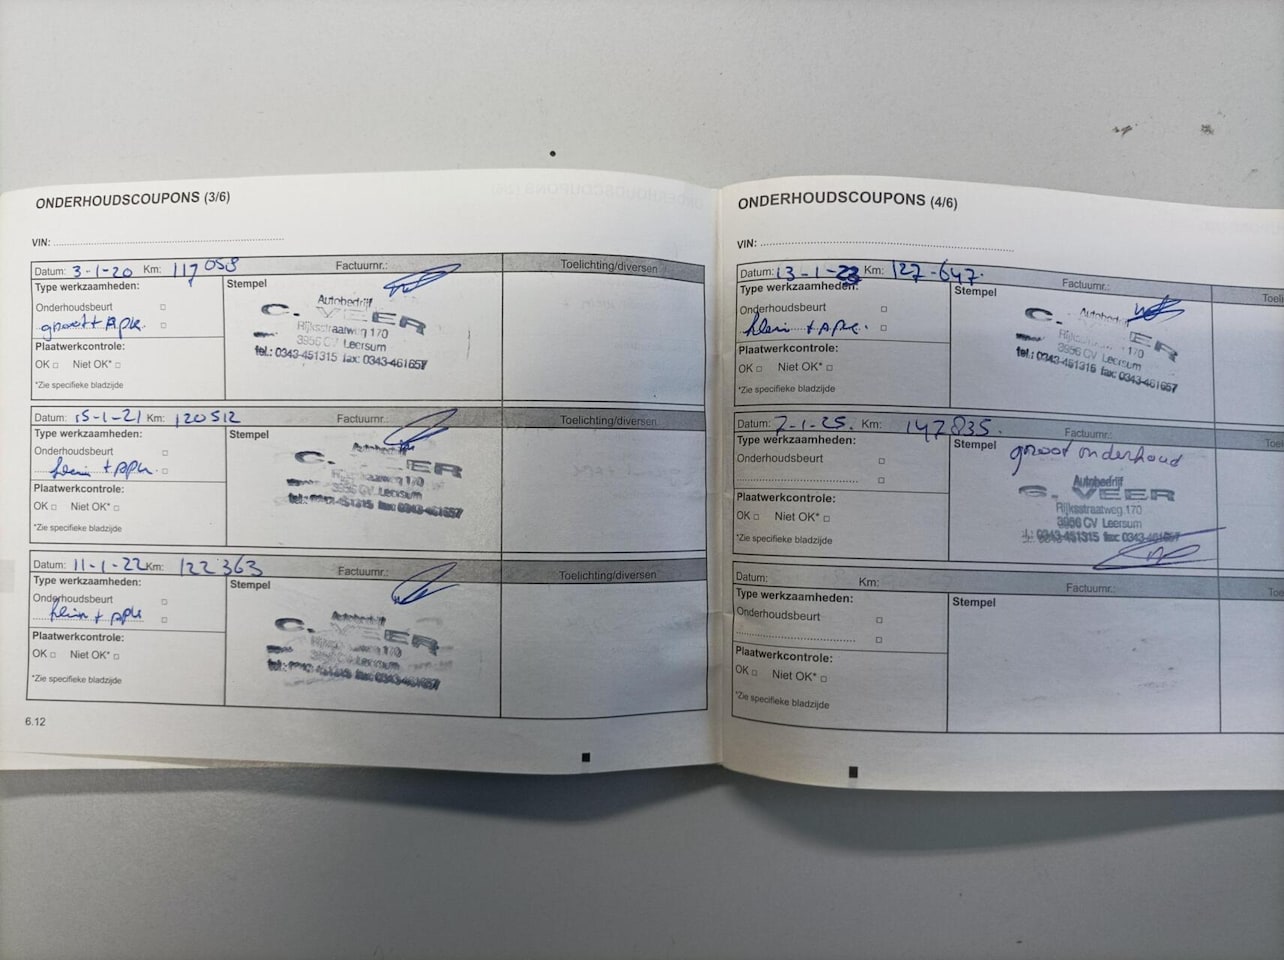 ONDERHOUDSCOUPONS (3/6)
VIN:
Datum: 3-1-20 Km: 117058 Factuurnr.: Toelichting/diversen
Type werkzaamheden:
Stempel
Onderhoudsbeurt
groot + APK.
Plaatwerkcontrole:
OK Niet OK*
*Zie specifieke bladzijde
Autobedrijf
C. VEER
Rijksstraatweg 170
3956 CV Leersum
tel.: 0343-451315 fax: 0343-461657
Datum: 15-1-21 Km: 120512 Factuurnr.: Toelichting/diversen
Type werkzaamheden:
Stempel
Onderhoudsbeurt
klein + APK.
Plaatwerkcontrole:
OK Niet OK*
*Zie specifieke bladzijde
Autobedrijf
C. VEER
Rijksstraatweg 170
3956 CV Leersum
tel.: 0343-451315 fax: 0343-461657
Datum: 11-1-22 Km: 122363 Factuurnr.: Toelichting/diversen
Type werkzaamheden:
Stempel
Onderhoudsbeurt
klein + APK
Plaatwerkcontrole:
OK Niet OK*
*Zie specifieke bladzijde
Autobedrijf
C. VEER
Rijksstraatweg 170
3956 CV Leersum
tel.: 0343-451315 fax: 0343-461657
6.12
ONDERHOUDSCOUPONS (4/6)
VIN:
Datum: 13-1-23 Km: 127-647. Factuurnr.: Toeli
Type werkzaamheden:
Stempel
Onderhoudsbeurt
klein + APK.
Plaatwerkcontrole:
OK Niet OK*
*Zie specifieke bladzijde
Autobedrijf
C. VEER
170
3956 CV Leersum
tel.: 0343-451315 fax: 0343-461657
Datum: 7-1-25. Km: 147835. Factuurnr.: Toe
Type werkzaamheden:
Stempel
groot onderhoud
Onderhoudsbeurt
Plaatwerkcontrole:
OK Niet OK*
*Zie specifieke bladzijde
Autobedrijf
C. VEER
Rijksstraatweg 170
3956 CV Leersum
0343-451315 fax: 0343-461657
Datum: Km: Factuurnr.: Toe
Type werkzaamheden:
Stempel
Onderhoudsbeurt
Plaatwerkcontrole:
OK Niet OK*
*Zie specifieke bladzijde